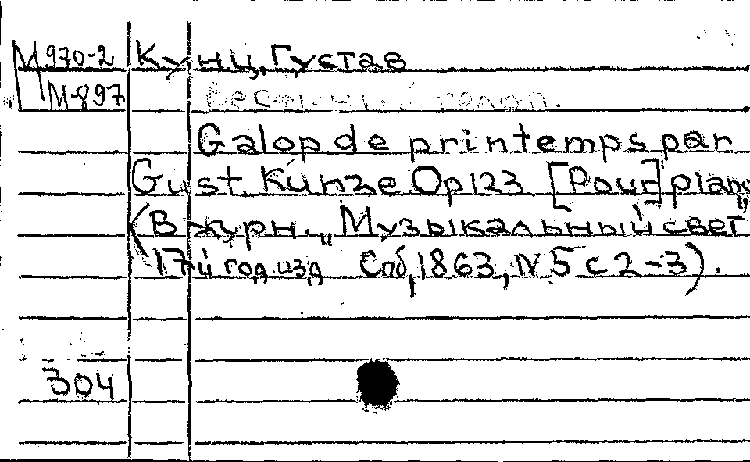 М 970-2 Кунц, Густав
М-897 Весенний галоп.
Galop de printemps par
Gust. Kunze Op 123 [Pour] piano
(В журн. „Музыкальный свет"
17й год изд Спб, 1863, N. 5 с 2-3).
304